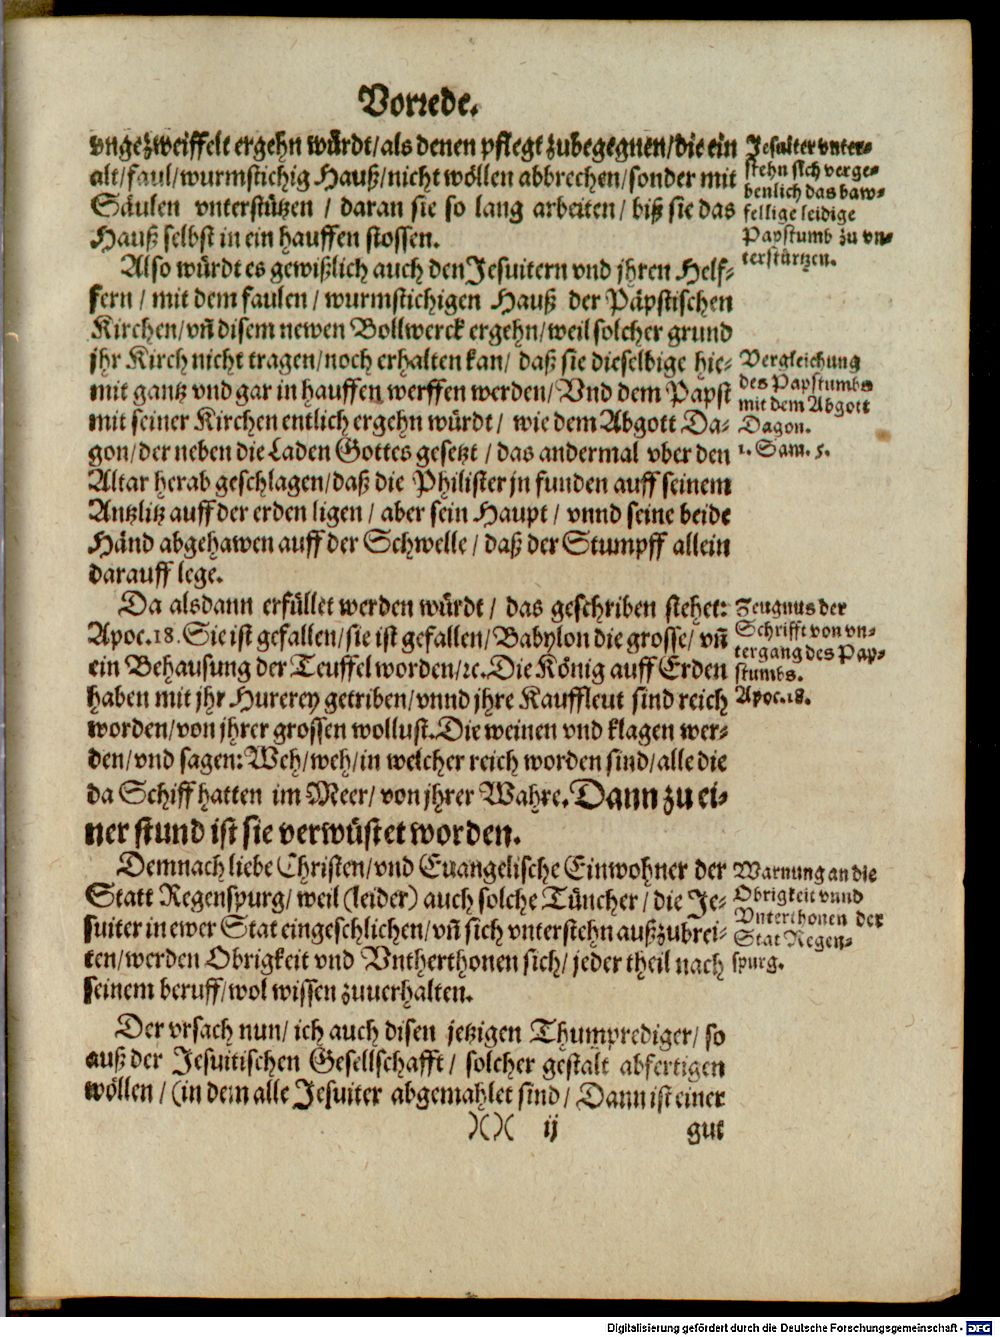 Vorrede.
vngezweiffelt ergehn würdt/als denen pflegt zubegegnen/die ein
alt/faul/wurmstichig Hauß/nicht wöllen abbrechen/sonder mit
Säulen vnterstützen / daran sie so lang arbeiten/ biß sie das
Hauß selbst in ein hauffen stossen.
Jesuiter vnter-
stehn sich verge-
benlich das baw-
fellige leidige
Papstumb zu vn-
terstürtzen.
Also würdt es gewißlich auch den Jesuitern vnd jhren Helf-
fern / mit dem faulen / wurmstichigen Hauß der Päpstischen
Kirchen/vñ disem newen Bollwerck ergehn/weil solcher grund
jhr Kirch nicht tragen/noch erhalten kan/ daß sie dieselbige hie-
mit gantz vnd gar in hauffen werffen werden/Vnd dem Papst
mit seiner Kirchen entlich ergehn würdt/ wie dem Abgott Da-
gon/der neben die Laden Gottes gesetzt / das andermal vber den
Altar herab geschlagen/daß die Philister jn funden auff seinem
Antzlitz auff der erden ligen / aber sein Haupt / vnnd seine beide
Händ abgehawen auff der Schwelle / daß der Stumpff allein
darauff lege.
Vergleichung
des Papstumbs
mit dem Abgott
Dagon.
1. Sam. 5.
Da alsdann erfüllet werden würdt / das geschriben stehet:
Apoc. 18. Sie ist gefallen/sie ist gefallen/Babylon die grosse/ vñ
ein Behausung der Teuffel worden/ꝛc. Die König auff Erden
haben mit jhr Hurerey getriben/vnnd jhre Kauffleut sind reich
worden/von jhrer grossen wollust. Die weinen vnd klagen wer-
den/vnd sagen: Weh/weh/in welcher reich worden sind/alle die
da Schiff hatten im Meer/ von jhrer Wahre. Dann zu ei-
ner stund ist sie verwüstet worden.
Zeugnus der
Schrifft von vn-
tergang des Pap-
stumbs.
Apoc. 18.
Demnach liebe Christen/vnd Euangelische Einwohner der
Statt Regenspurg/ weil (leider) auch solche Tüncher / die Je-
suiter in ewer Stat eingeschlichen/vñ sich vnterstehn außzubrei-
ten/werden Obrigkeit vnd Vntherthonen sich/ jeder theil nach
seinem beruff/wol wissen zuuerhalten.
Warnung an die
Obrigkeit vnnd
Vnterthonen der
Stat Regen-
spurg.
Der vrsach nun/ ich auch disen jetzigen Thumprediger/ so
auß der Jesuitischen Gesellschafft / solcher gestalt abfertigen
wöllen / (in dem alle Jesuiter abgemahlet sind/ Dann ist einer
)( )( ij
gut
Digitalisierung gefördert durch die Deutsche Forschungsgemeinschaft - DFG